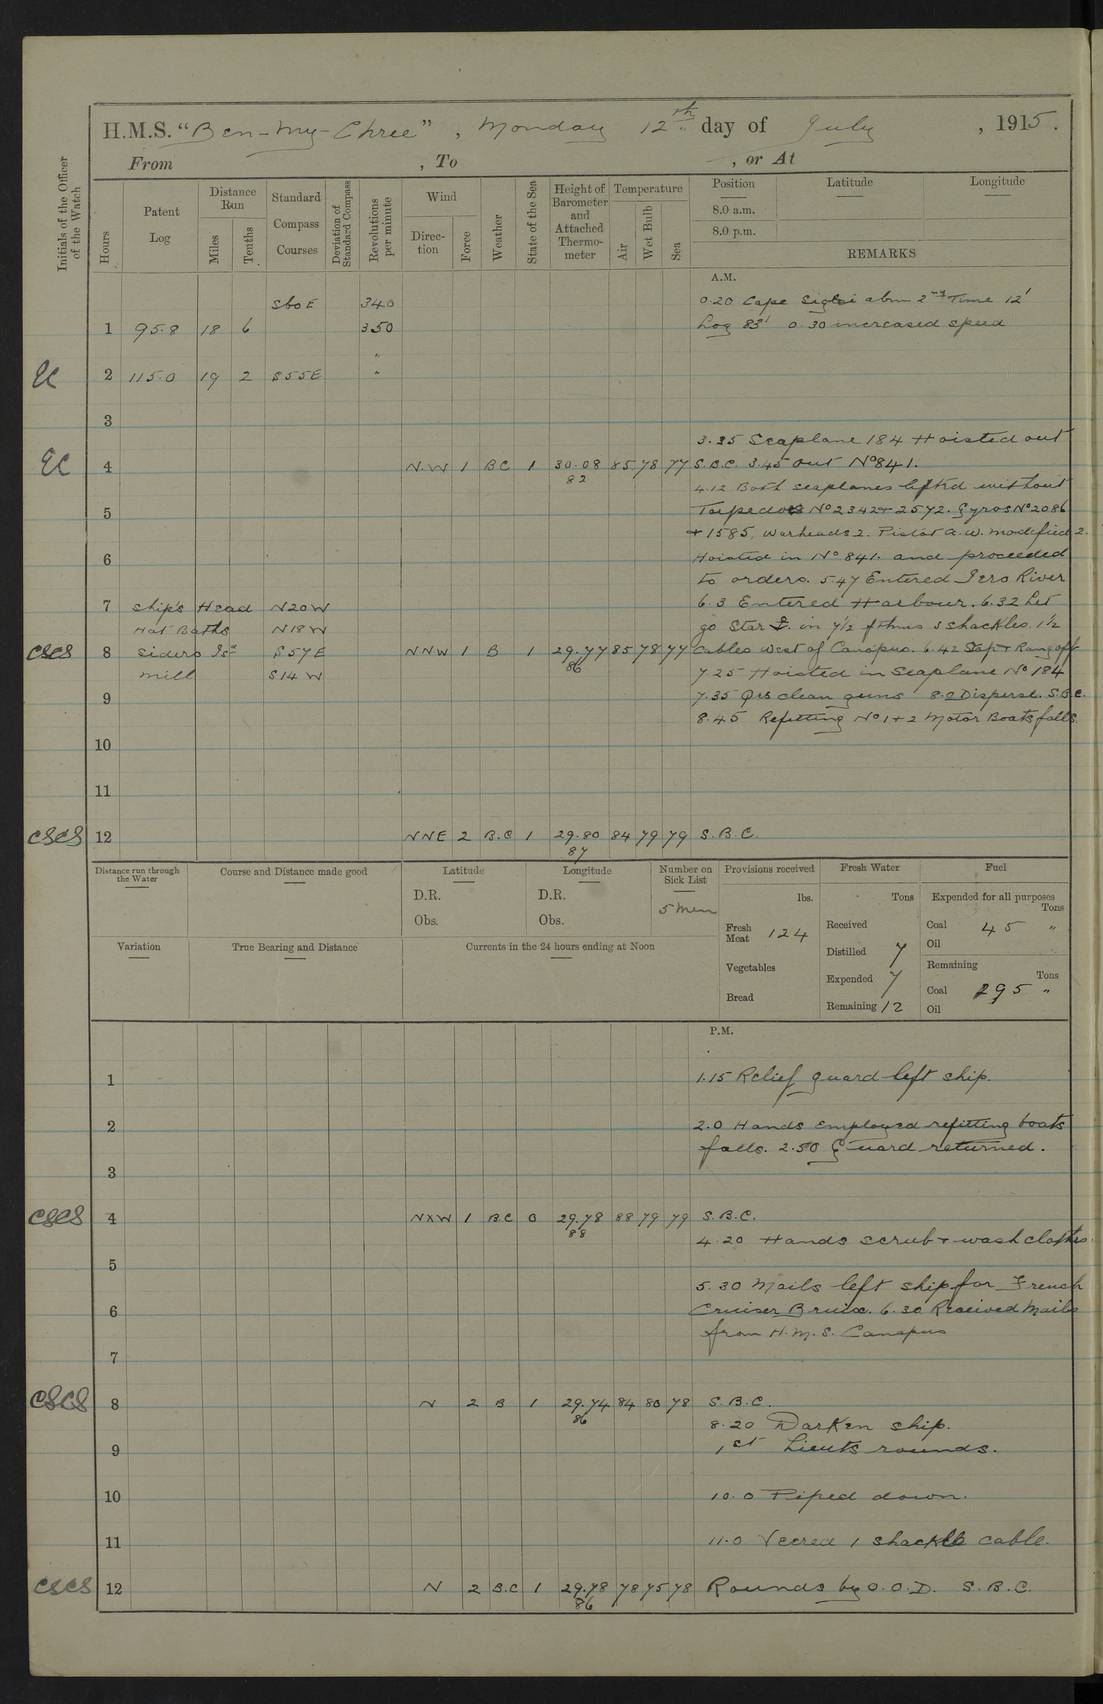 H.M.S. "Ben-My-Chree", Monday 12th day of July, 1915.
From , To , or At
Initials of the Officer of the Watch
Hours
Patent Log
Distance Run
Miles
Tenths
Standard Compass Courses
Deviation of Standard Compass
Revolutions per minute
Wind
Direction
Force
Weather
State of the Sea
Height of Barometer and Attached Thermometer
Temperature
Air
Wet Bulb
Sea
Position Latitude Longitude
8.0 a.m.
8.0 p.m.
REMARKS
A.M.
SboE 340 0.20 Cape Sigri abm 2nd Time 12'
1 95.8 18 6 350 Log 83' 0.30 increased speed
"
EC 2 115.0 19 2 S55E "
3
3.35 Seaplane 184 Hoisted out
EC 4 N.W 1 BC 1 30.08 85 78 77 S.B.C. 3.45 out No 841.
82
4.12 Both seaplanes lifted without
5 Torpedoes No 2342 + 2572. Gyros No 2086
+ 1585, Warheads 2. Pistol A.W. modified 2.
6 Hoisted in No 841. and proceeded
to orders. 5.47 Entered Iero River
7 Ship's Head N20W 6.3 Entered Harbour. 6.32 Let
Hot Baths N18W go Star in 7½ fthms 3 shackles. 1½
CSCS 8 Sidero Isd S57E NNW 1 B 1 29.77 85 78 77 Cables West of Canopus. 6.42 Stop + Rang off
86
Mill S14W 7.25 Hoisted in Seaplane No 184
9 7.35 Qrs clean guns 8.0 Disperse. S.B.C.
8.45 Refitting No 1 + 2 Motor Boats falls.
10
11
CSCS 12 NNE 2 B.C 1 29.80 84 79 79 S.B.C.
87
Distance run through the Water
Course and Distance made good
Latitude
D.R.
Obs.
Longitude
D.R.
Obs.
Number on Sick List
5 men
Variation
True Bearing and Distance
Currents in the 24 hours ending at Noon
Provisions received
lbs.
Fresh Meat 124
Vegetables
Bread
Fresh Water
Tons
Received
Distilled 7
Expended 7
Remaining 12
Fuel
Expended for all purposes
Tons
Coal 45 "
Oil
Remaining
Tons
Coal 295 "
Oil
P.M.
1 1.15 Relief guard left ship.
2 2.0 Hands employed refitting boats
falls. 2.50 Guard returned.
3
CSCS 4 NXW 1 BC 0 29.78 88 79 79 S.B.C.
88
4.20 Hands scrub + wash clothes.
5
5.30 Mails left ship for French
6 Cruiser Bruix. 6.30 Received Mails
from H.M.S. Canopus
7
CSCS 8 N 2 B 1 29.74 84 80 78 S.B.C.
86
8.20 Darken ship.
9 1st Lieuts rounds.
10 10.0 Piped down.
11 11.0 Veered 1 shackle cable.
CSCS 12 N 2 B.C 1 29.78 78 75 78 Rounds by O.O.D. S.B.C.
86